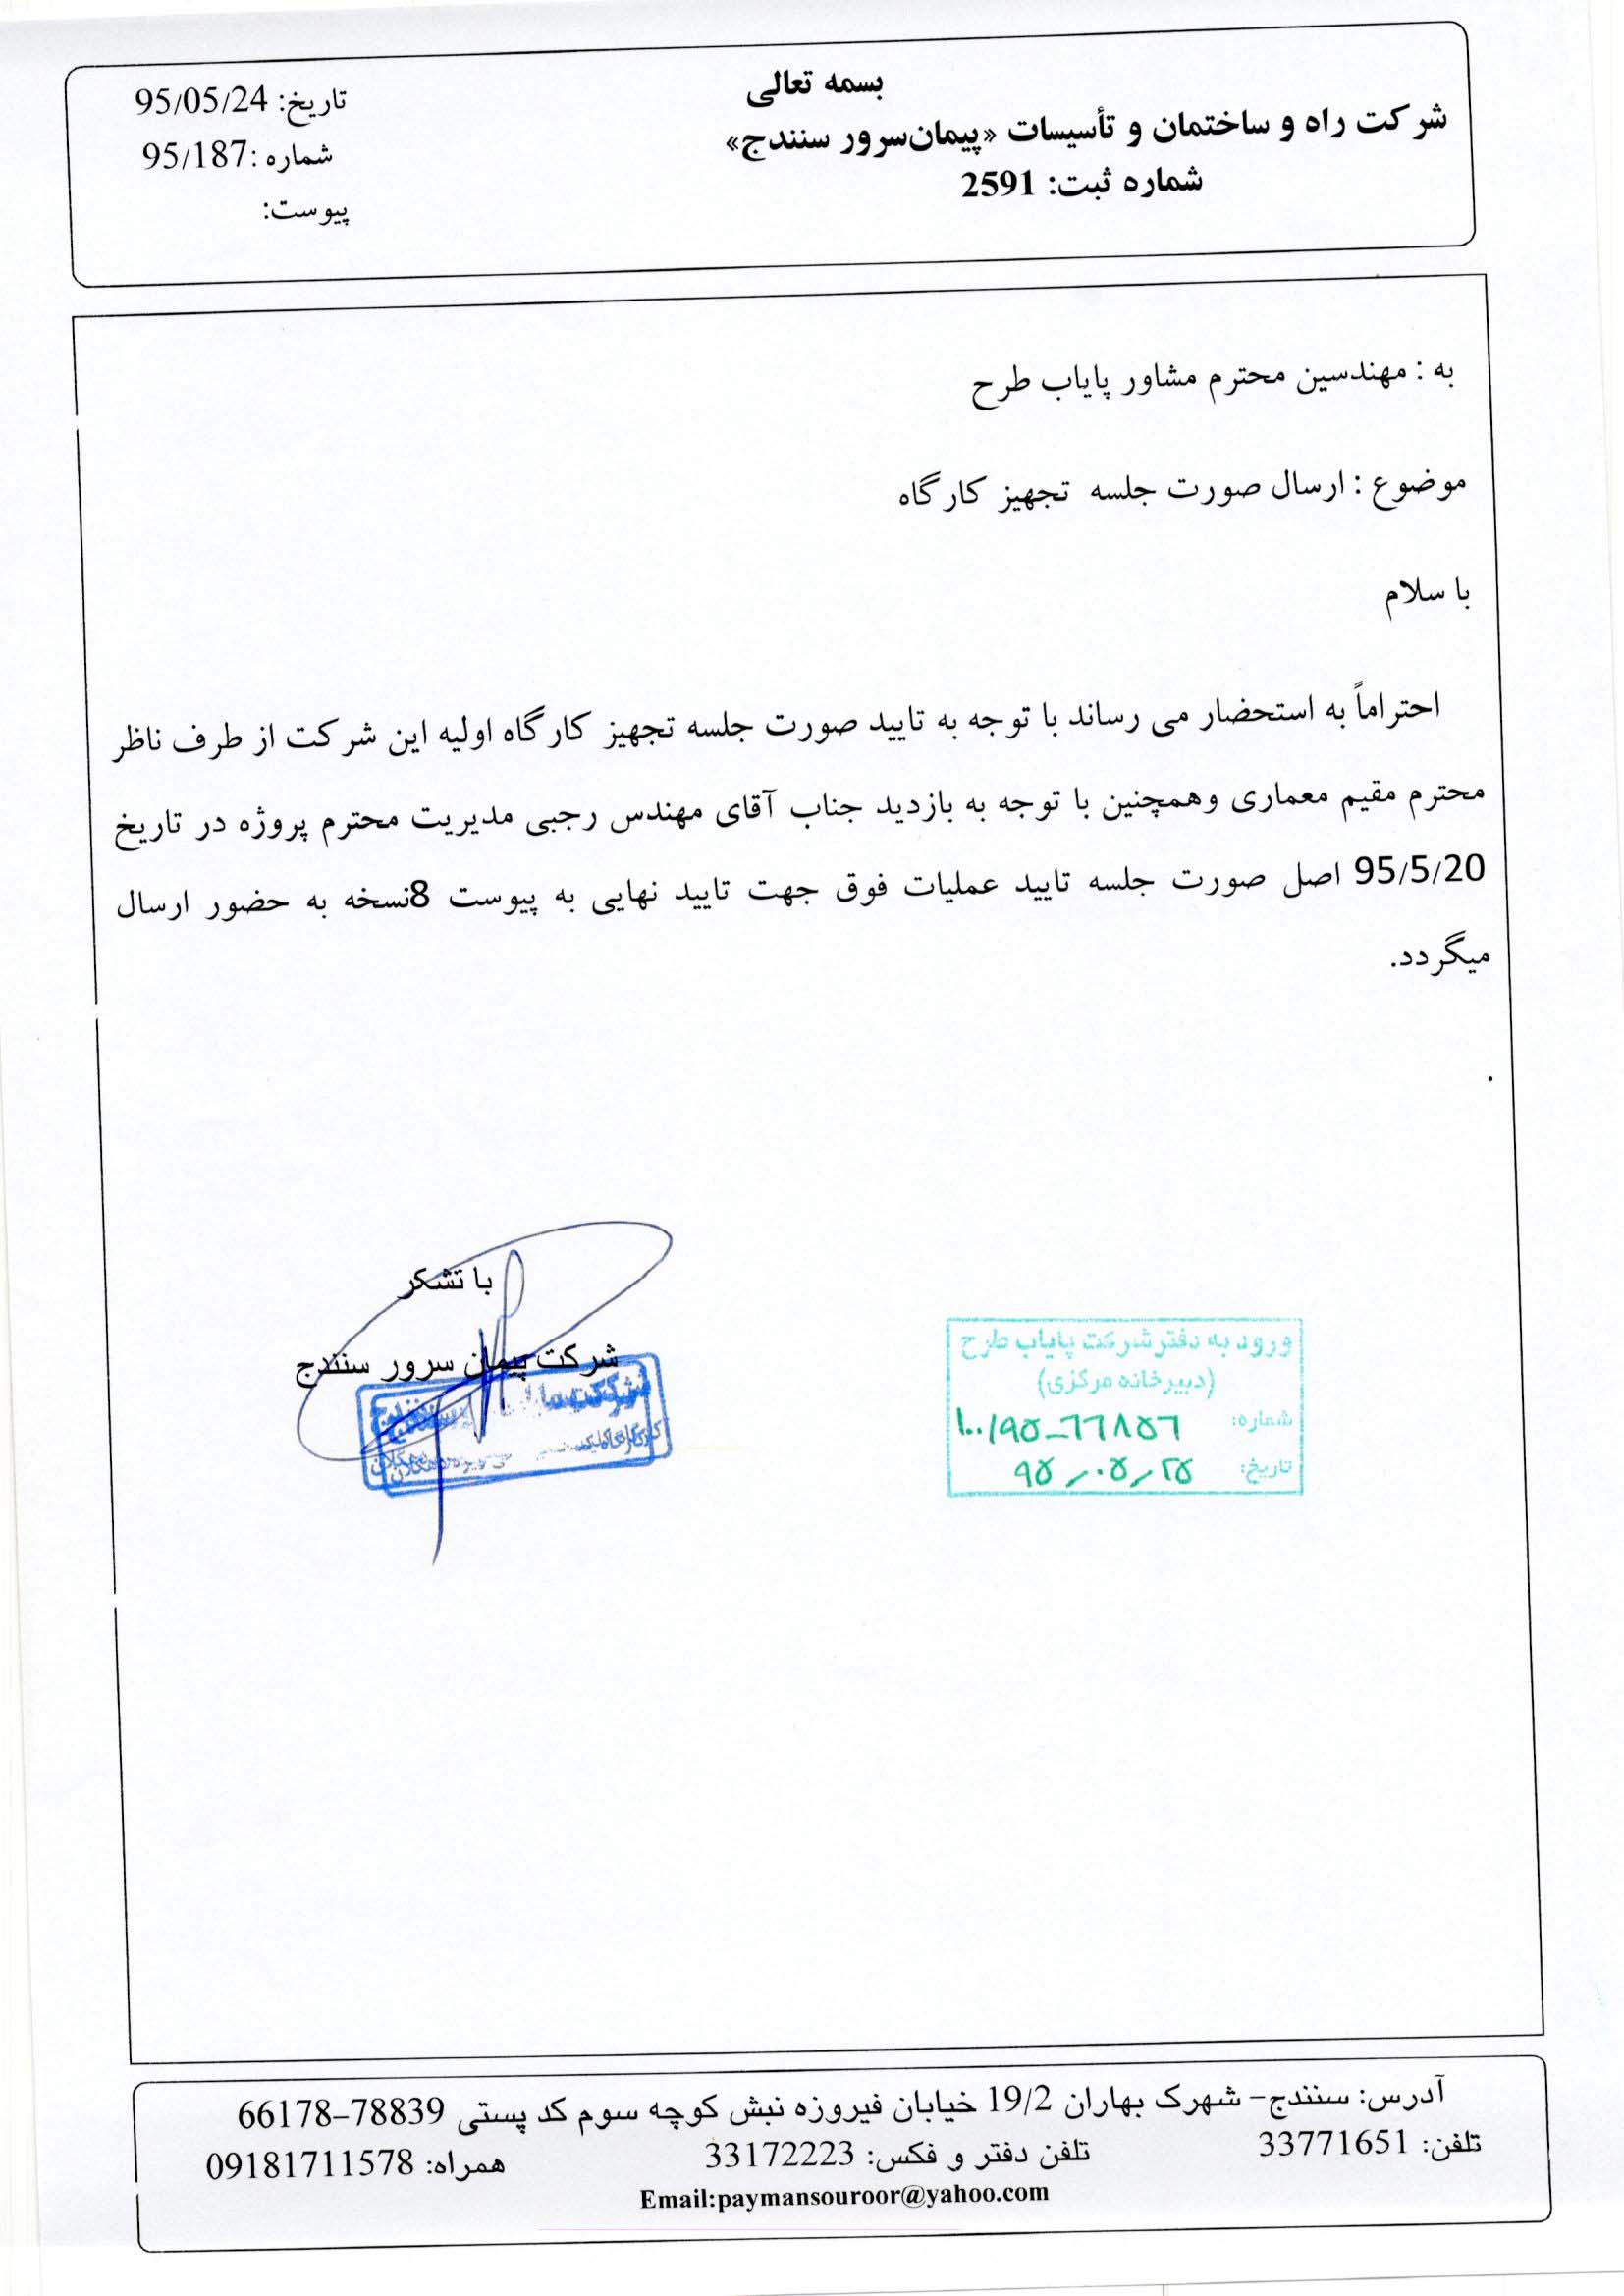 بسمه تعالی
شرکت راه و ساختمان و تأسیسات «پیمان‌سرور سنندج»
شماره ثبت: 2591
تاریخ: 95/05/24
شماره :95/187
پیوست:
به : مهندسین محترم مشاور پایاب طرح
موضوع : ارسال صورت جلسه تجهیز کارگاه
با سلام
احتراماً به استحضار می رساند با توجه به تایید صورت جلسه تجهیز کارگاه اولیه این شرکت از طرف ناظر
محترم مقیم معماری وهمچنین با توجه به بازدید جناب آقای مهندس رجبی مدیریت محترم پروژه در تاریخ
95/5/20 اصل صورت جلسه تایید عملیات فوق جهت تایید نهایی به پیوست 8نسخه به حضور ارسال
میگردد.
.
با تشکر
شرکت پیمان سرور سنندج
ورود به دفتر شرکت پایاب طرح
(دبیرخانه مرکزی)
شماره: ۱۰۰/۹۵-۶۶۸۵۶
تاریخ: ۹۵/۰۵/۲۵
آدرس: سنندج- شهرک بهاران 19/2 خیابان فیروزه نبش کوچه سوم کد پستی 78839-66178
تلفن: 33771651 تلفن دفتر و فکس: 33172223 همراه: 09181711578
Email:paymansouroor@yahoo.com